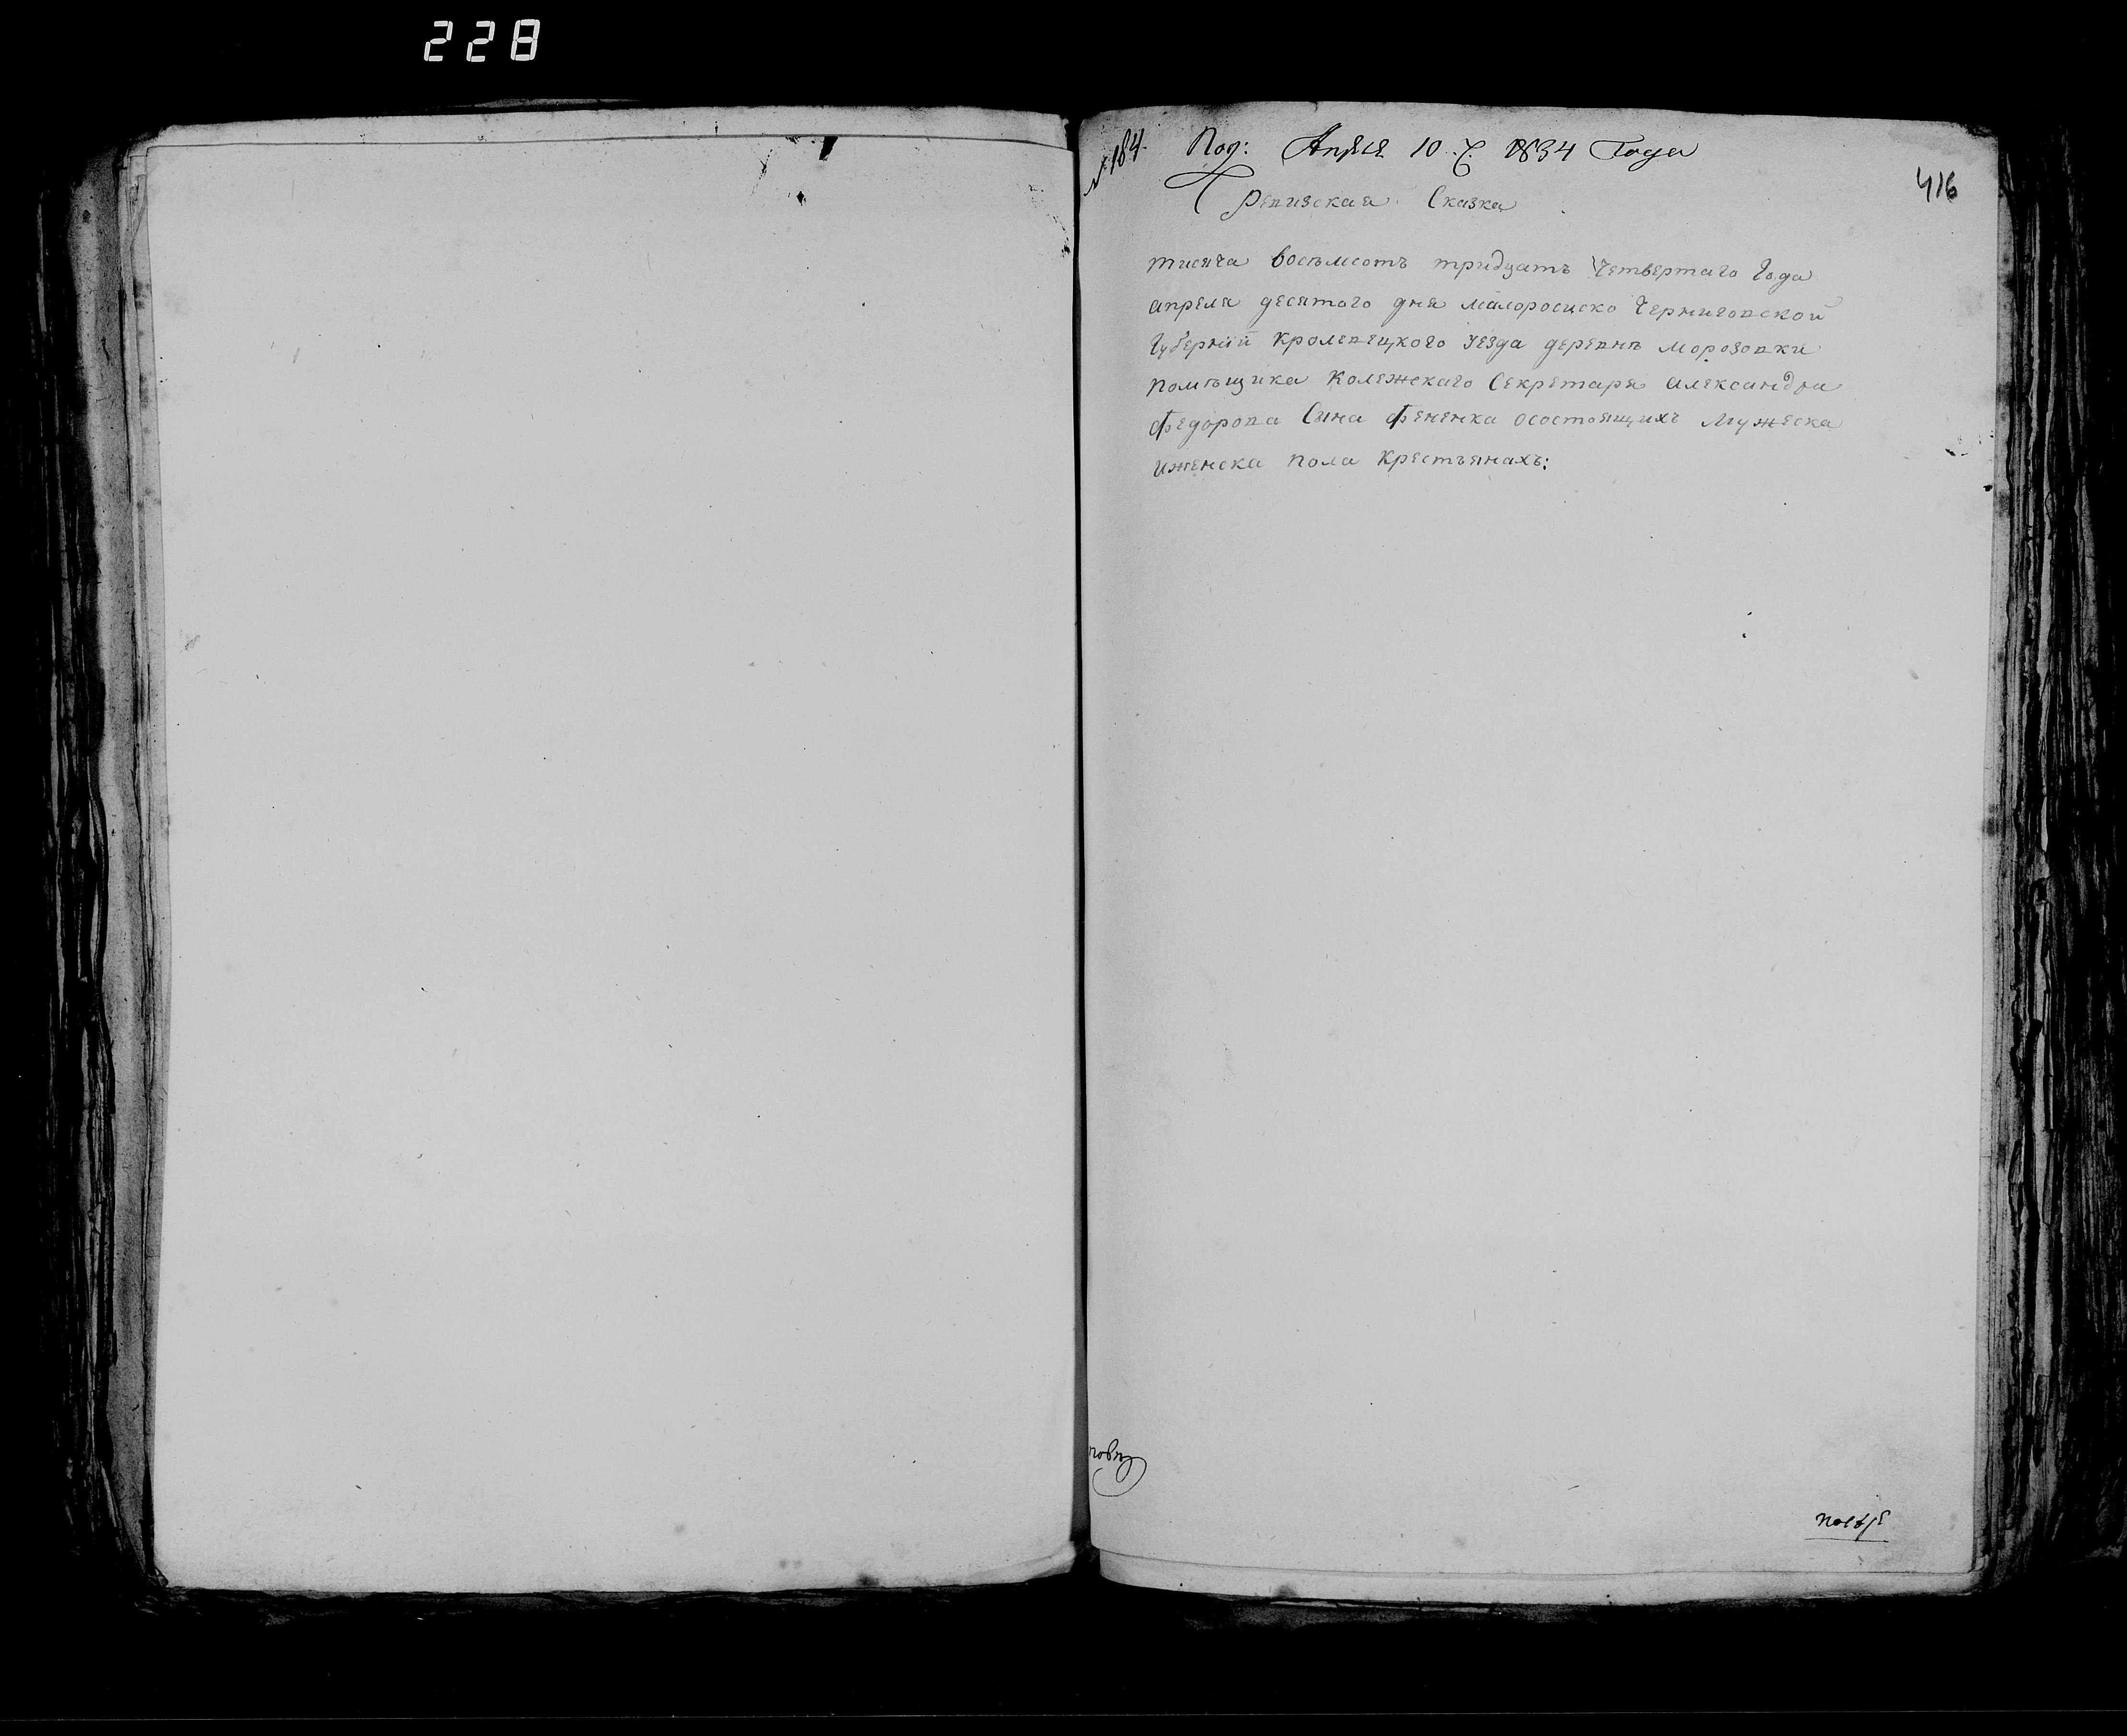 228
№ 184. Под: Апреля 10 ч. 1834 Года
416
Ревизская Сказка
тисяча восъмсотъ тридцатъ Четвертаго Года
апреля десятого дня малоросиско Черниговской
Губерний кролевецкого уезда деревнѣ морозовки
помѣщика колежскаго Секретаря александра
Федорова Сина Фененка осостоящихъ мужеска
иженска пола крестъянахъ: